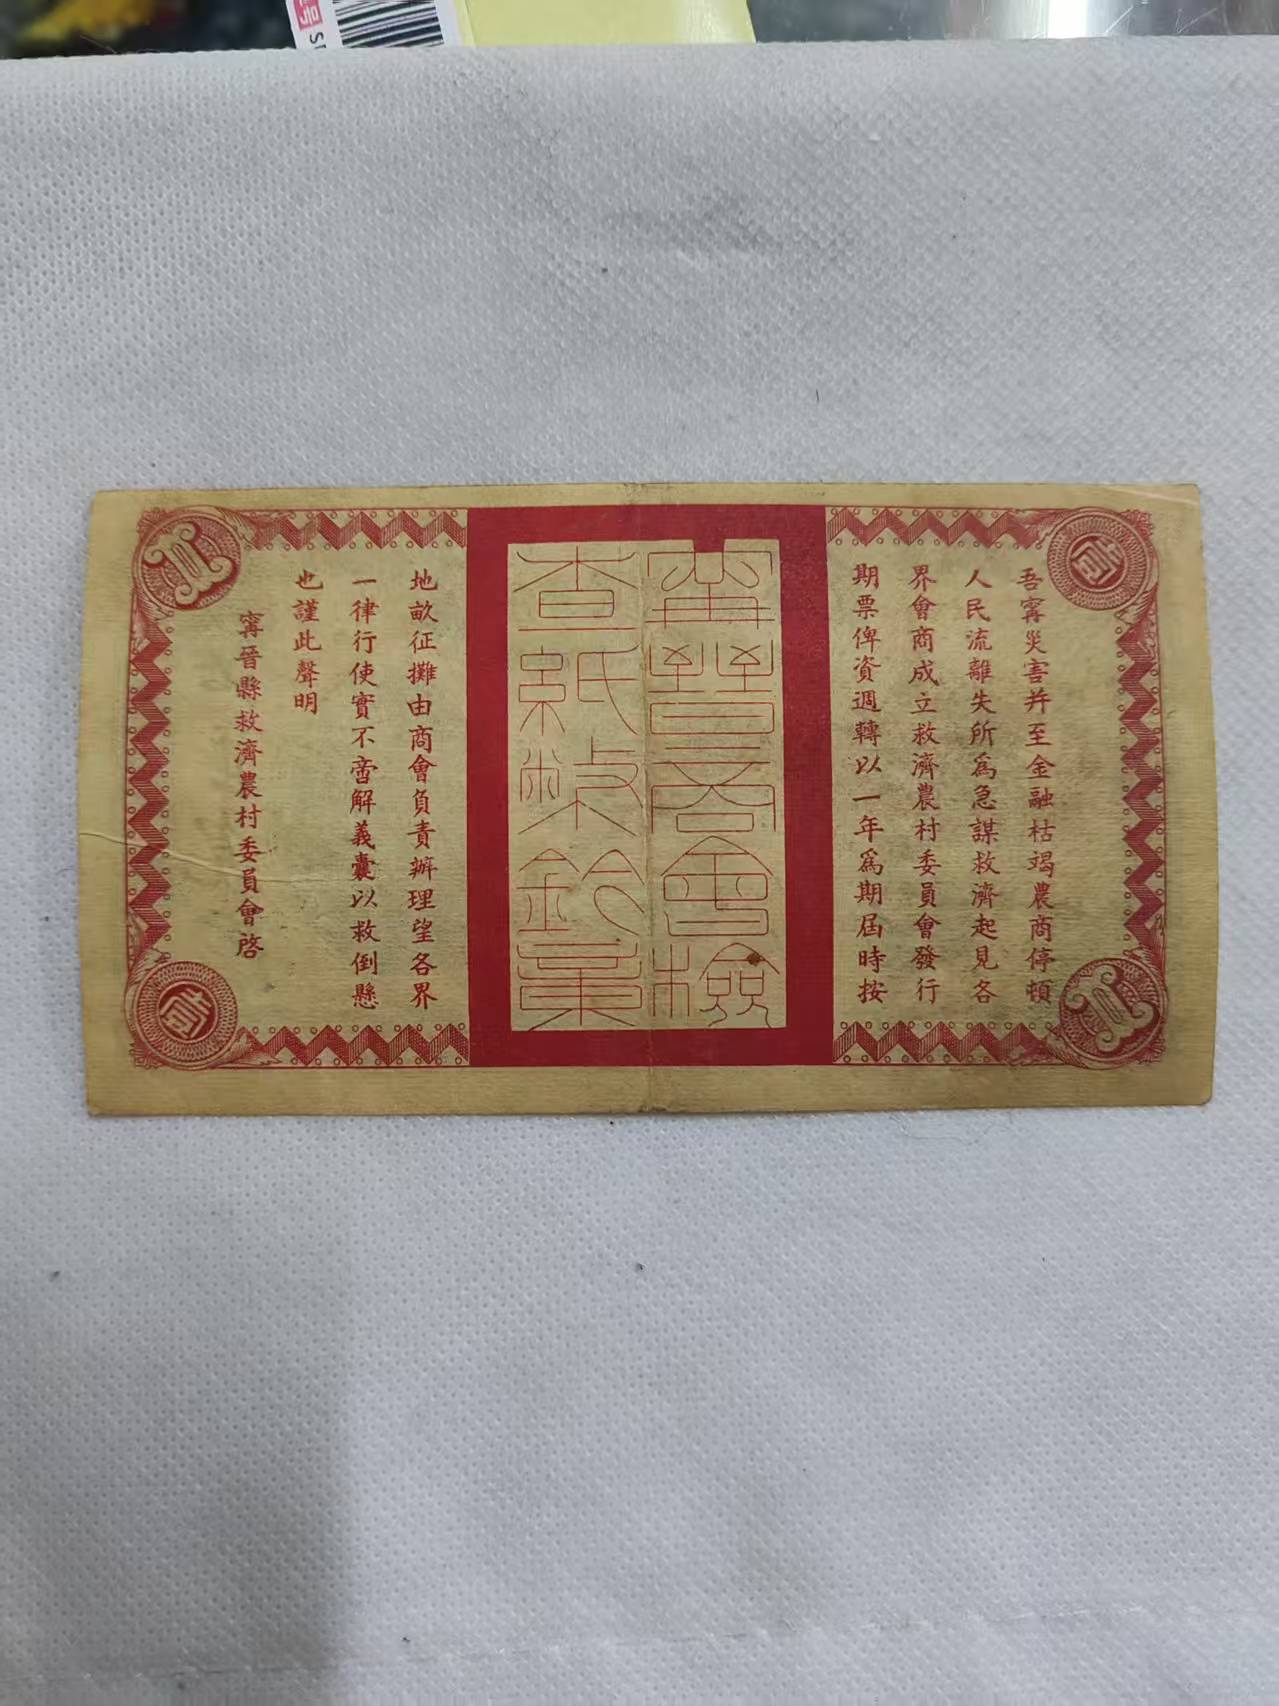 吾寗災害并至金融枯竭農商停頓
人民流離失所爲急謀救濟起見各
界會商成立救濟農村委員會發行
期票俾資週轉以一年爲期屆時按
甯晉商會檢
查紙幣鈐章
地畝征攤由商會負責辦理望各界
一律行使實不啻解義囊以救倒懸
也謹此聲明
寗晉縣救濟農村委員會啓
壹
壹